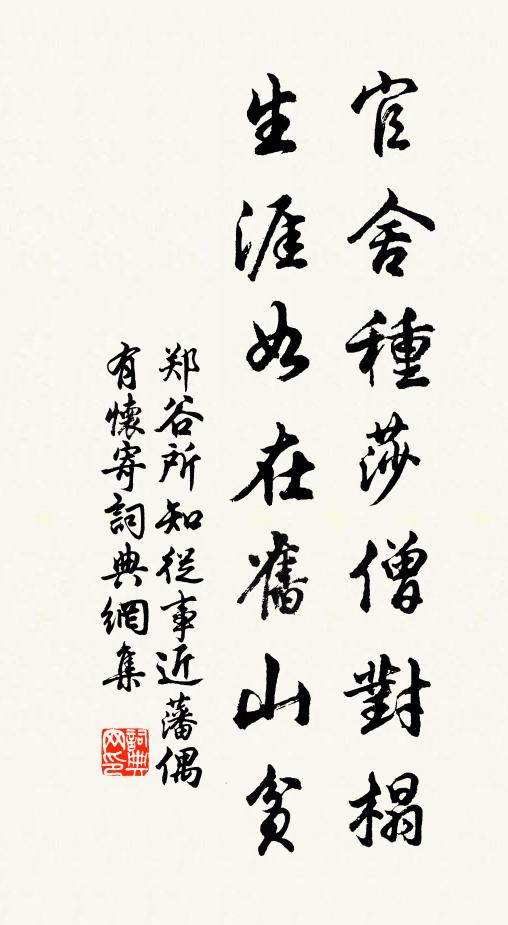 官舍種莎僧對榻
生涯如在舊山貧
郑谷所知從事近藩偶
有懷寄詞典網集
詞典
网印